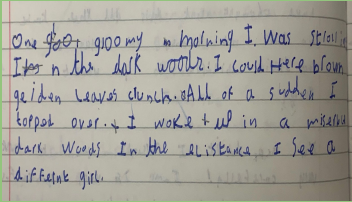 One gloomy morning I was stroll
In the dark woods. I could Here brown
golden leaves clunch. All of a sudden I
topped over. I woke up in a miserble
dark woods In the distance I see a
differnt girl.